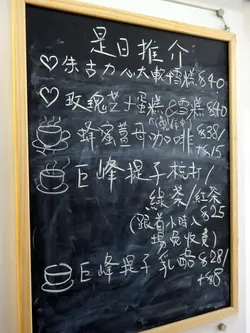 是日推介
朱古力心太軟+雪糕 $40
玫瑰芝士蛋糕+雪糕 $40
蜂蜜薑母咖啡 $38/
+$15
巨峰提子梳打/
綠茶/紅茶
$25
(跟着小時入
場免收費)
巨峰提子乳酪 $28/
+$8